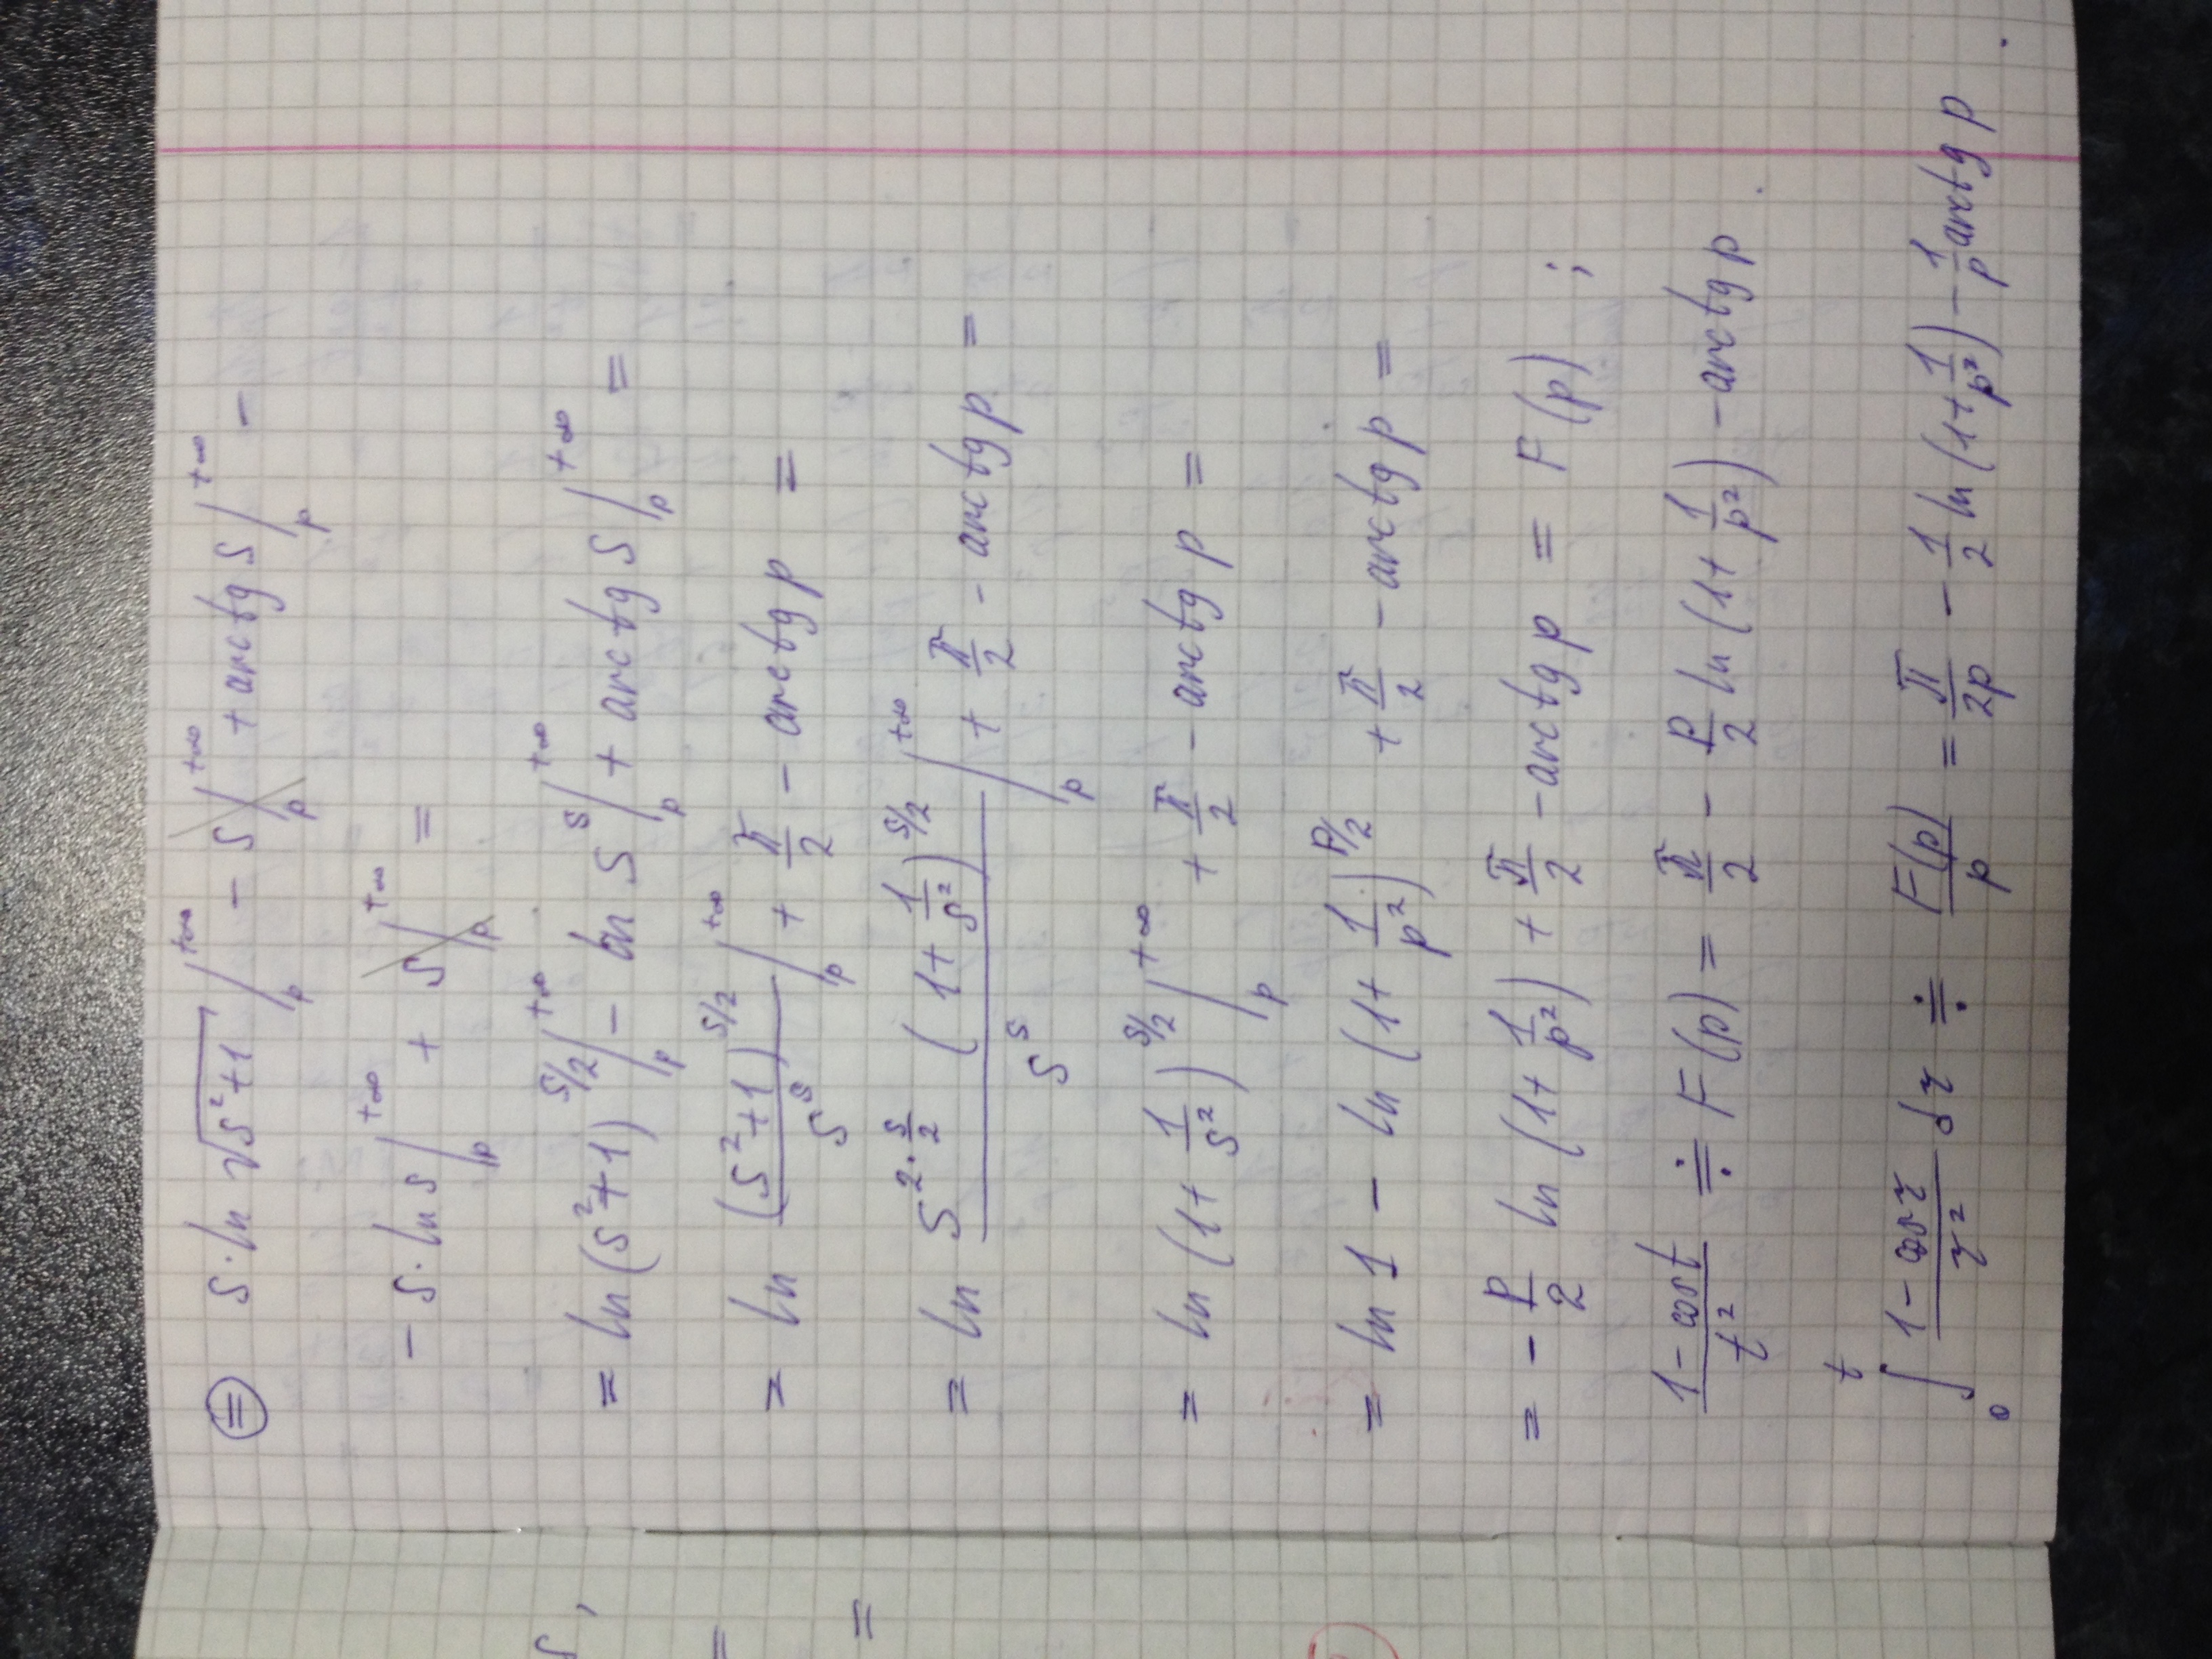 ⊜ s·ln √(s²+1) |ₚ^{+∞} − s |ₚ^{+∞} + arctg s |ₚ^{+∞} −
− s·ln s |ₚ^{+∞} + s |ₚ^{+∞} =
= ln (s²+1)^{s/2} |ₚ^{+∞} − ln s^s |ₚ^{+∞} + arctg s |ₚ^{+∞} =
= ln (s²+1)^{s/2} / s^s |ₚ^{+∞} + π/2 − arctg p =
= ln s^{2·s/2} (1+ 1/s²)^{s/2} / s^s |ₚ^{+∞} + π/2 − arctg p =
= ln (1+ 1/s²)^{s/2} |ₚ^{+∞} + π/2 − arctg p =
= ln 1 − ln (1+ 1/p²)^{p/2} + π/2 − arctg p =
= − p/2 ln (1+ 1/p²) + π/2 − arctg p = F(p) ;
(1−cos t)/t² ≓ F(p) = π/2 − p/2 ln (1+ 1/p²) − arctg p
∫₀^t (1−cos τ)/τ² dτ ≓ F(p)/p = π/2p − 1/2 ln (1+ 1/p²) − 1/p arctg p .
s ,
=
=